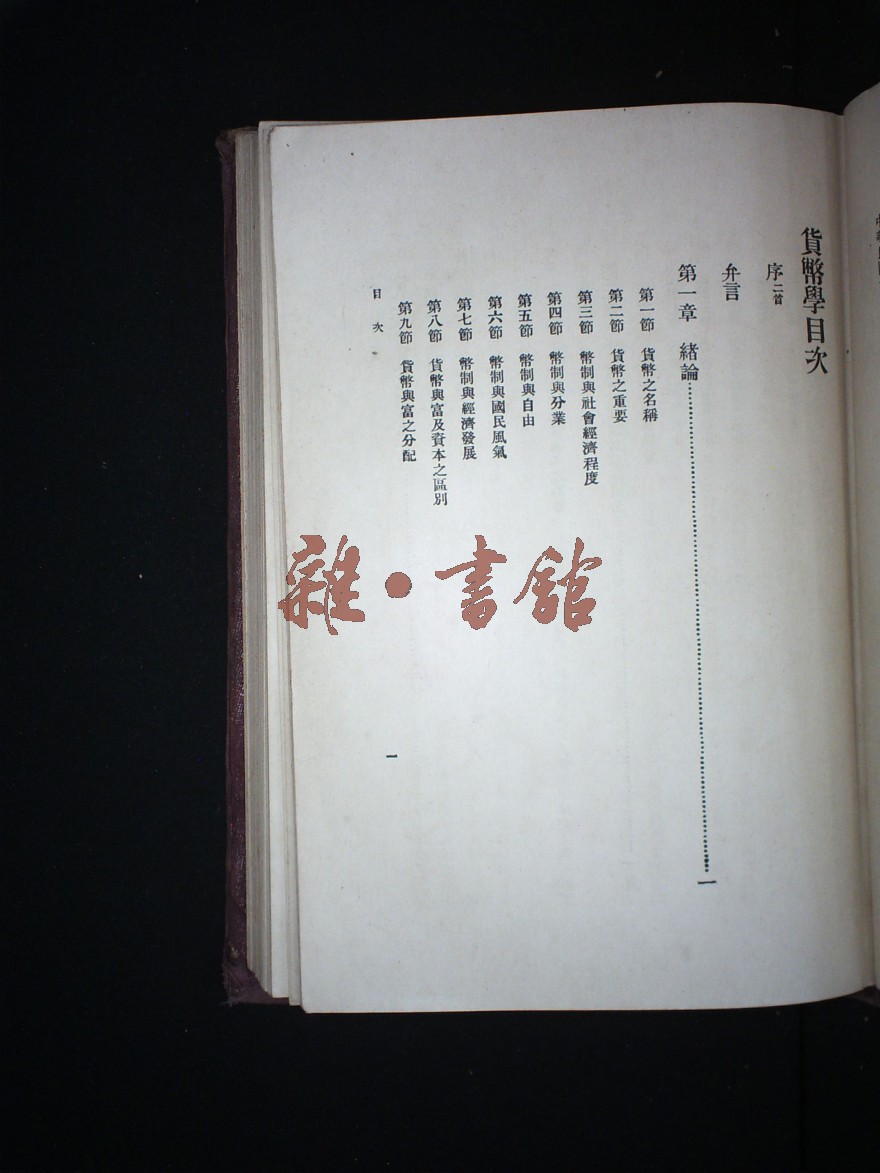 貨幣學目次
序二首
弁言
第一章 緒論……一
第一節 貨幣之名稱
第二節 貨幣之重要
第三節 幣制與社會經濟程度
第四節 幣制與分業
第五節 幣制與自由
第六節 幣制與國民風氣
第七節 幣制與經濟發展
第八節 貨幣與富及資本之區別
第九節 貨幣與富之分配
目次 一
雜·書館